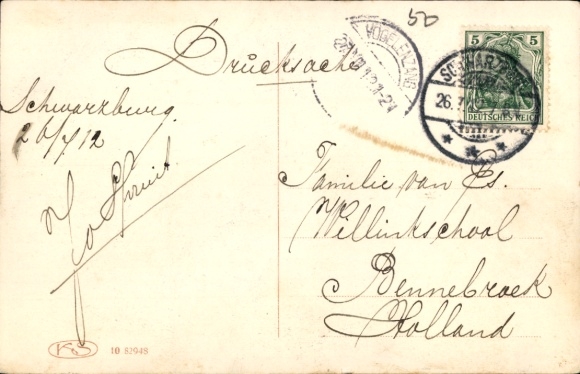 50
Drucksache
VOGELENZANG
5 5
DEUTSCHES REICH
Schwarzburg.
26/7 12
Familie van Ps.
Willinkschool
Bennebroek
Holland
KS 10 82948